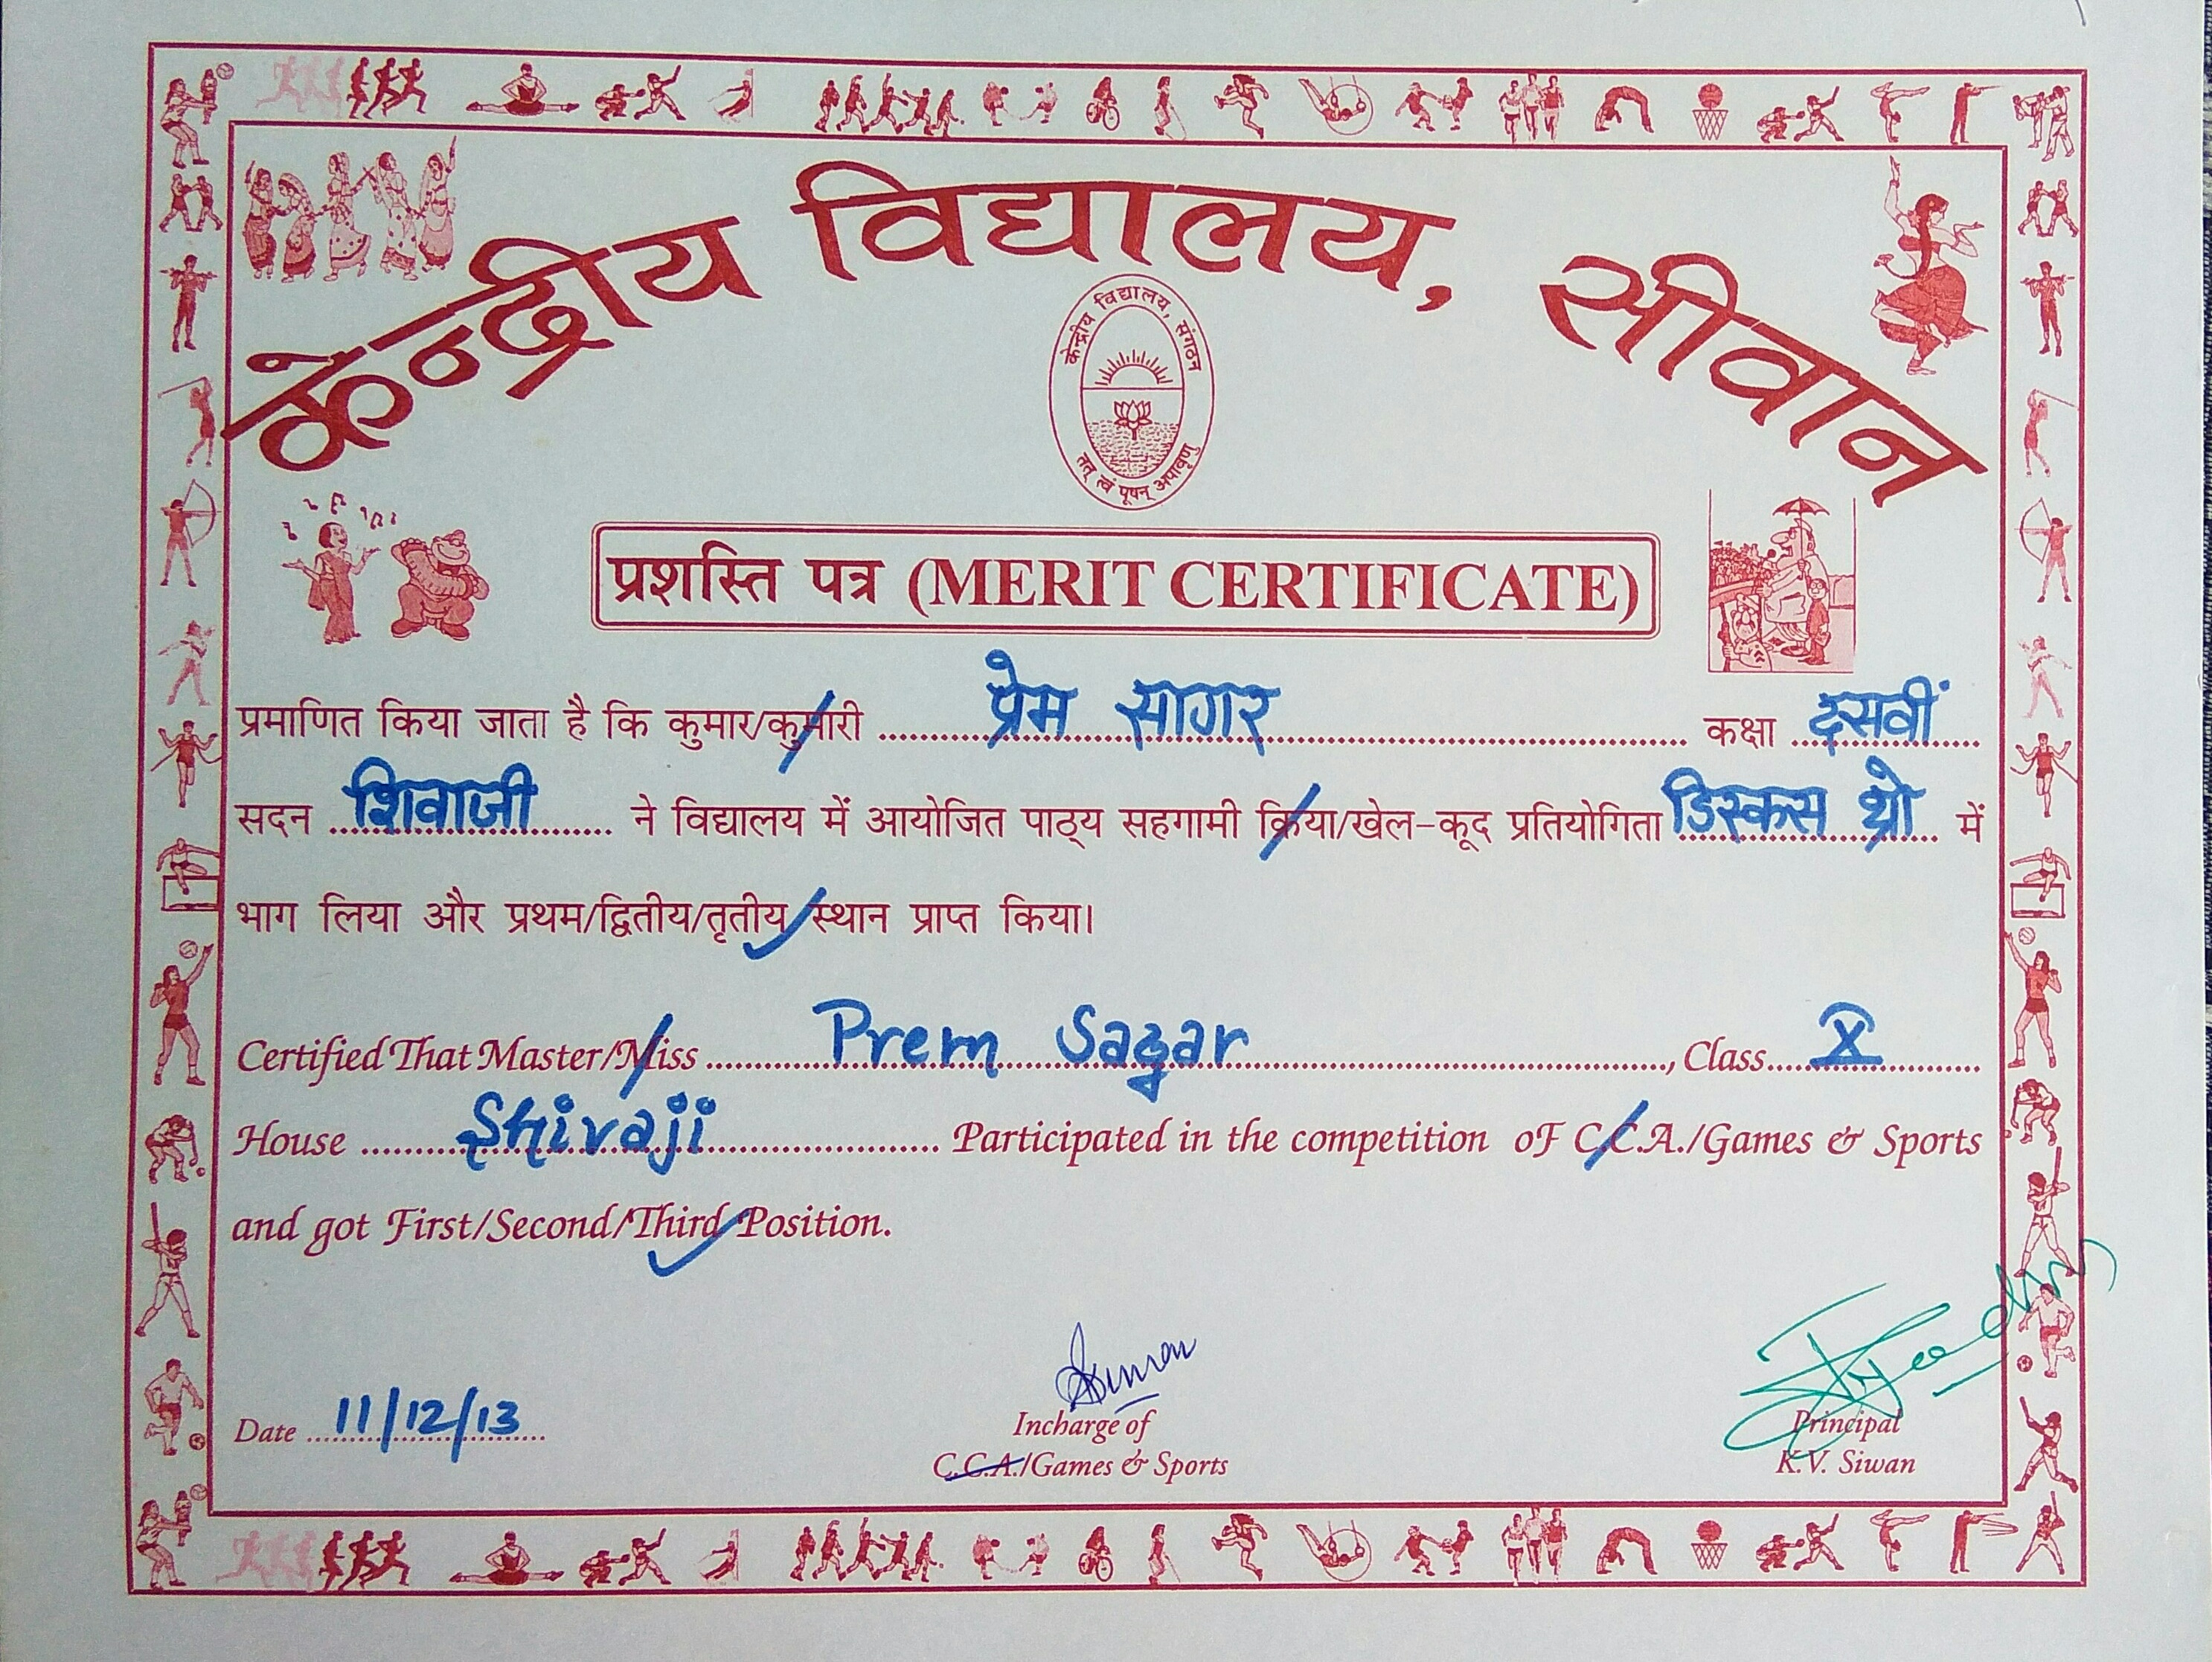 केन्द्रीय विद्यालय, सीवान
केन्द्रीय विद्यालय, संगठन
तत् त्वं पूषन् अपावृणु
प्रशस्ति पत्र (MERIT CERTIFICATE)
प्रमाणित किया जाता है कि कुमार/कुमारी प्रेम सागर कक्षा दसवीं
सदन शिवाजी ने विद्यालय में आयोजित पाठ्य सहगामी क्रिया/खेल-कूद प्रतियोगिता डिस्कस थ्रो में
भाग लिया और प्रथम/द्वितीय/तृतीय स्थान प्राप्त किया।
Certified That Master/Miss Prem Sagar, Class X
House Shivaji Participated in the competition oF C.C.A./Games & Sports
and got First/Second/Third Position.
Date 11/12/13
Incharge of
C.C.A./Games & Sports
Principal
K.V. Siwan